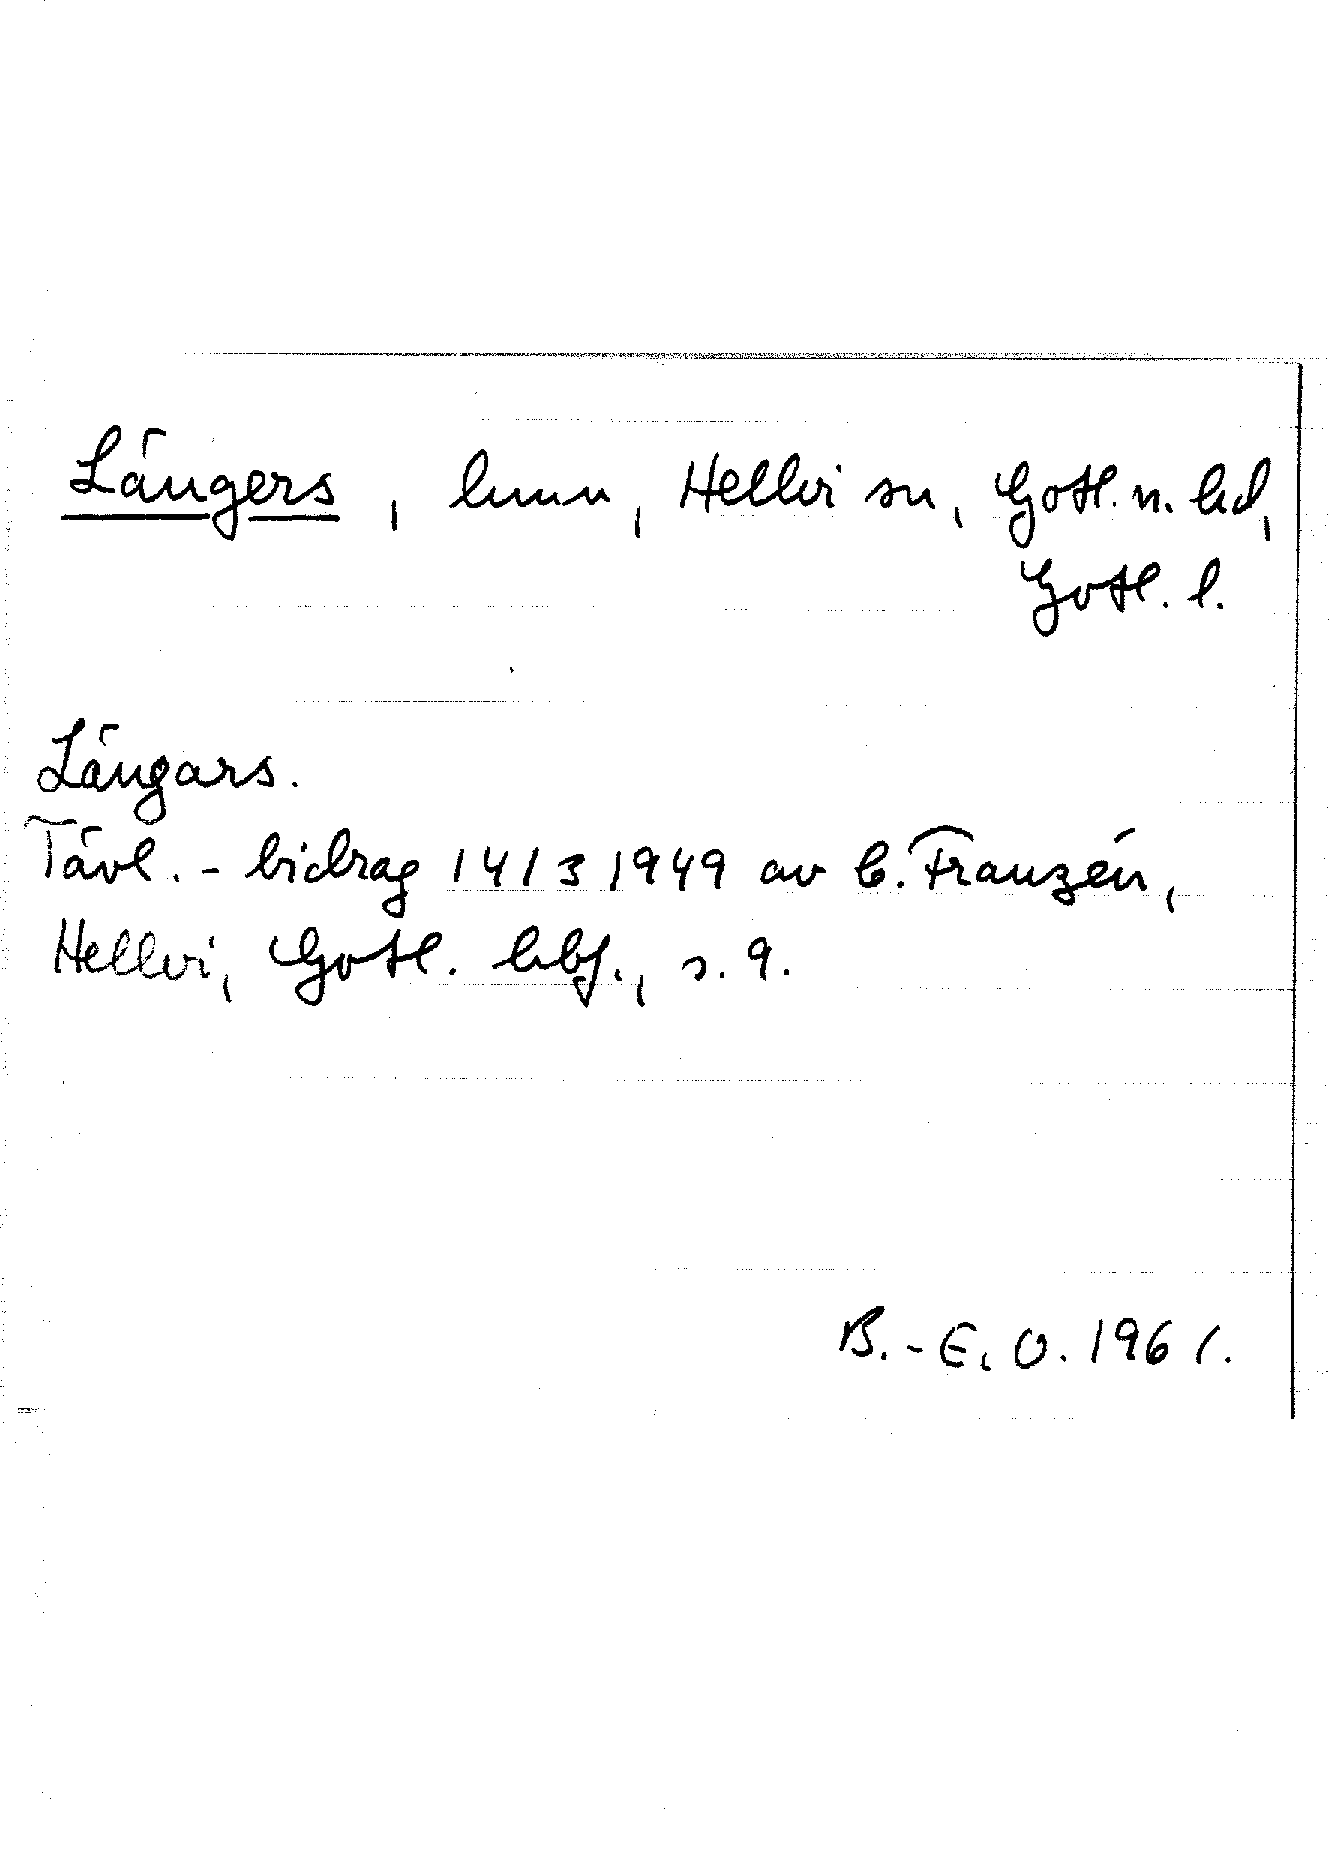 Längers, hmn, Hellvi sn, Gotl. n. hd,
Gotl. l.
Längars.
Tävl.-bidrag 14/3 1949 av B. Franzén,
Hellvi, Gotl. hbf., s. 9.
B.-E. O. 1961.